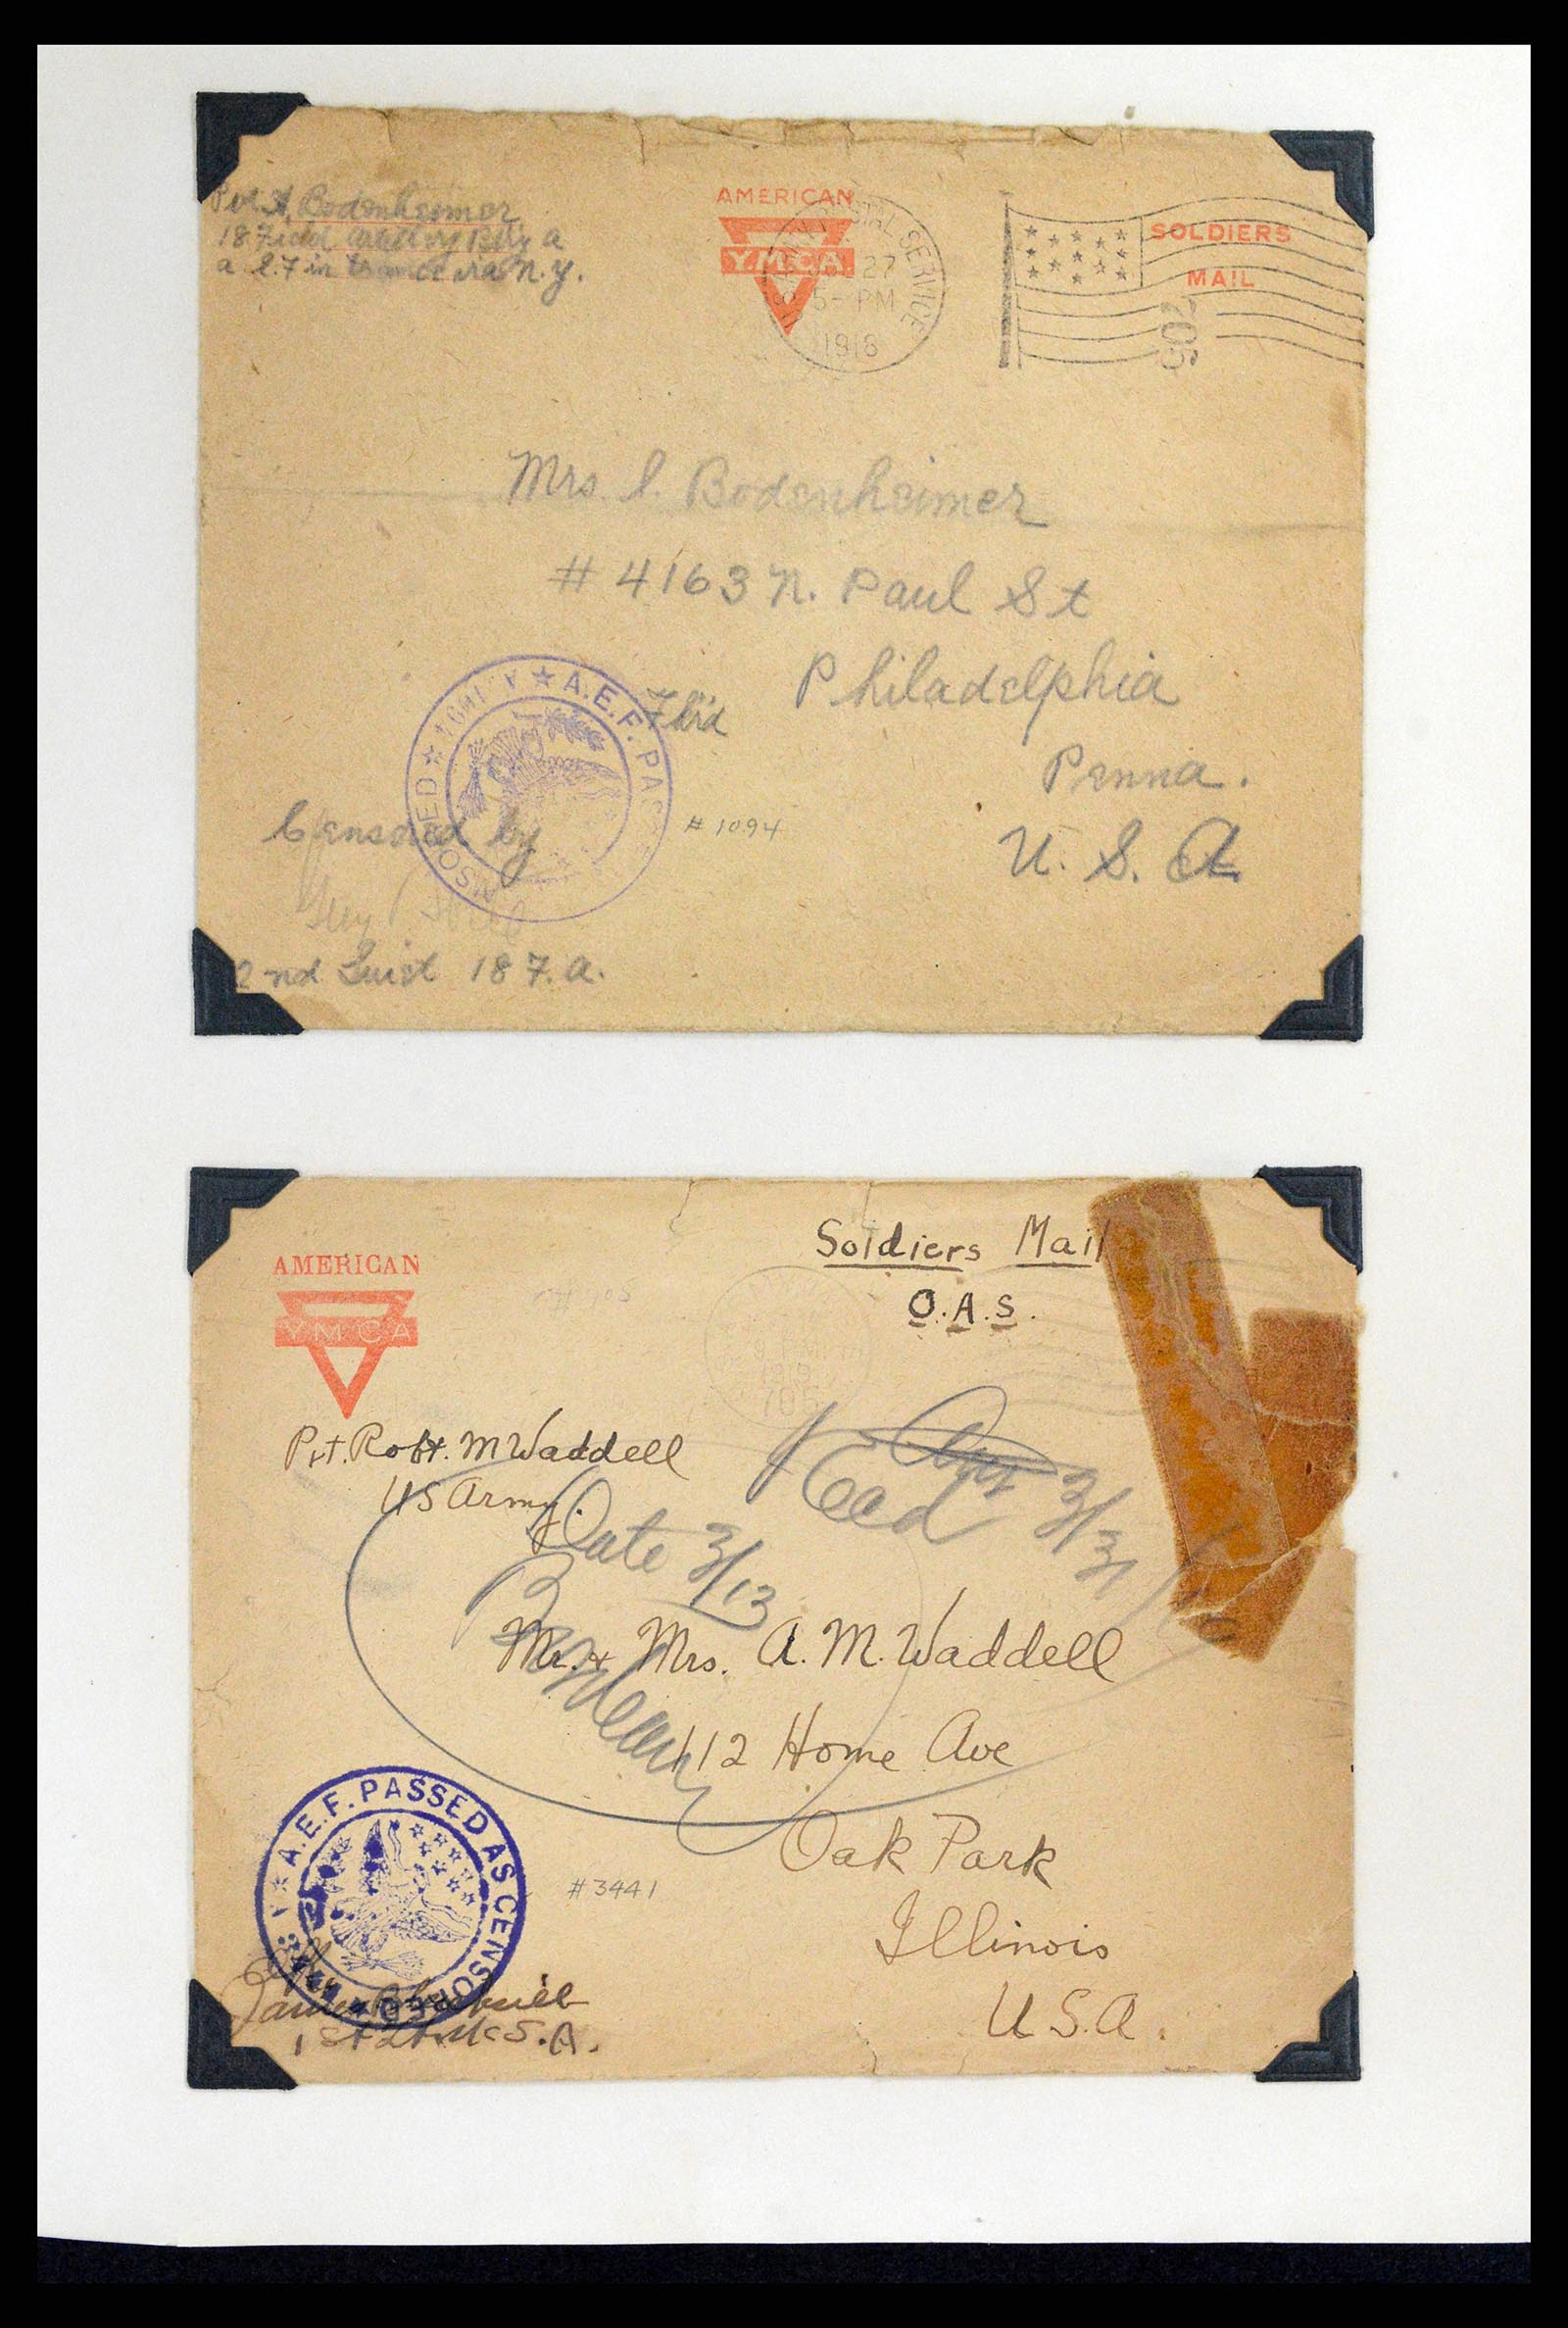 Pvt A. Bodenheimer
18 Field Artillery Btry a
a. E. F in France via N.Y.
AMERICAN
YMCA
POSTAL SERVICE
27
5- PM
1918
SOLDIERS
MAIL
705
Mrs. I. Bodenheimer
# 4163 N. Paul St
Philadelphia
Penna.
U. S. A.
A.E.F. PAS
Censored by
# 1094
2nd Luist 18 F. A.
Soldiers Mail
O.A.S.
AMERICAN
YMCA
1919
705
Pvt. Robt. M Waddell
US Army.
Ans 3/31
Recd
Date 3/13
Mr. & Mrs. A. M. Waddell
112 Home Ave
Oak Park
Illinois
U.S.A.
A.E.F. PASSED AS CENSORED
#3441
1st Lt. U.S.A.